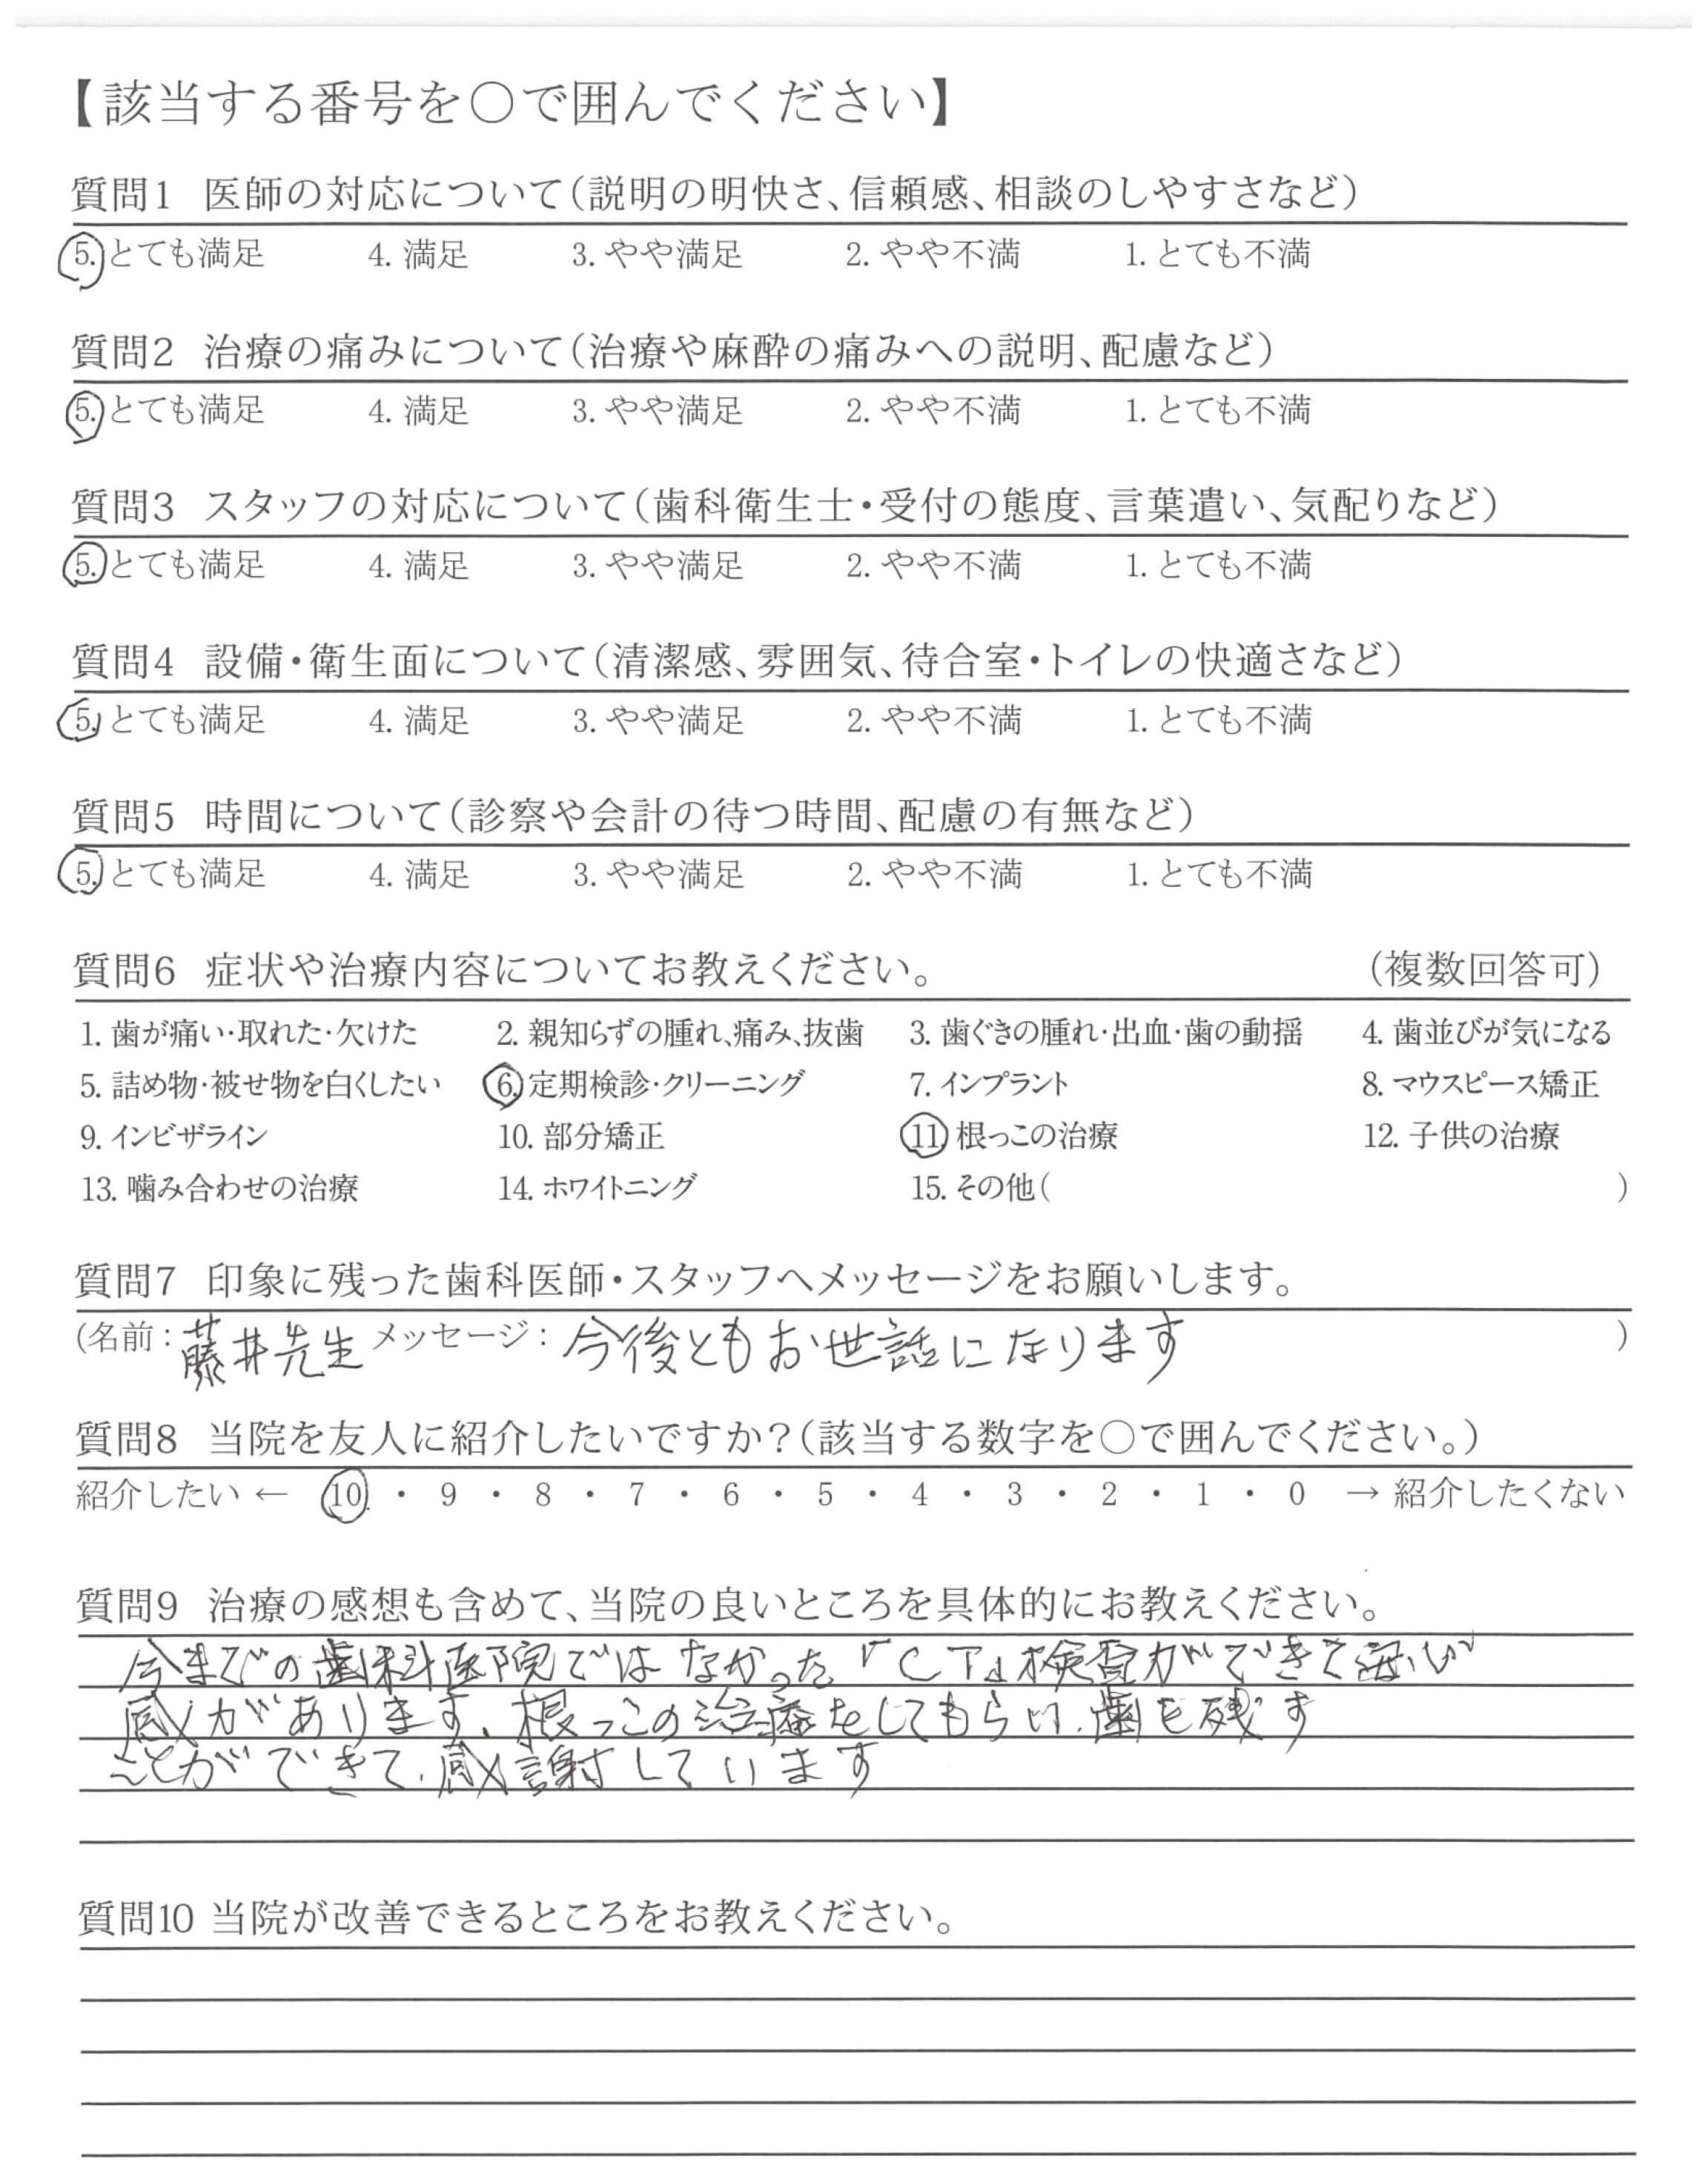 【該当する番号を○で囲んでください】
質問1 医師の対応について(説明の明快さ、信頼感、相談のしやすさなど)
5. とても満足 4. 満足 3. やや満足 2. やや不満 1. とても不満
質問2 治療の痛みについて(治療や麻酔の痛みへの説明、配慮など)
5. とても満足 4. 満足 3. やや満足 2. やや不満 1. とても不満
質問3 スタッフの対応について(歯科衛生士・受付の態度、言葉遣い、気配りなど)
5. とても満足 4. 満足 3. やや満足 2. やや不満 1. とても不満
質問4 設備・衛生面について(清潔感、雰囲気、待合室・トイレの快適さなど)
5. とても満足 4. 満足 3. やや満足 2. やや不満 1. とても不満
質問5 時間について(診察や会計の待つ時間、配慮の有無など)
5. とても満足 4. 満足 3. やや満足 2. やや不満 1. とても不満
質問6 症状や治療内容についてお教えください。 (複数回答可)
1. 歯が痛い・取れた・欠けた 2. 親知らずの腫れ、痛み、抜歯 3. 歯ぐきの腫れ・出血・歯の動揺 4. 歯並びが気になる
5. 詰め物・被せ物を白くしたい 6. 定期検診・クリーニング 7. インプラント 8. マウスピース矯正
9. インビザライン 10. 部分矯正 11. 根っこの治療 12. 子供の治療
13. 噛み合わせの治療 14. ホワイトニング 15. その他( )
質問7 印象に残った歯科医師・スタッフへメッセージをお願いします。
(名前: 藤井先生 メッセージ: 今後ともお世話になります )
質問8 当院を友人に紹介したいですか?(該当する数字を○で囲んでください。)
紹介したい ← 10 ・ 9 ・ 8 ・ 7 ・ 6 ・ 5 ・ 4 ・ 3 ・ 2 ・ 1 ・ 0 → 紹介したくない
質問9 治療の感想も含めて、当院の良いところを具体的にお教えください。
今までの歯科医院ではなかった「CT」検査ができて
感があります、根っこの治療をしてもらい、歯を残す
ことができて、感謝しています
質問10 当院が改善できるところをお教えください。